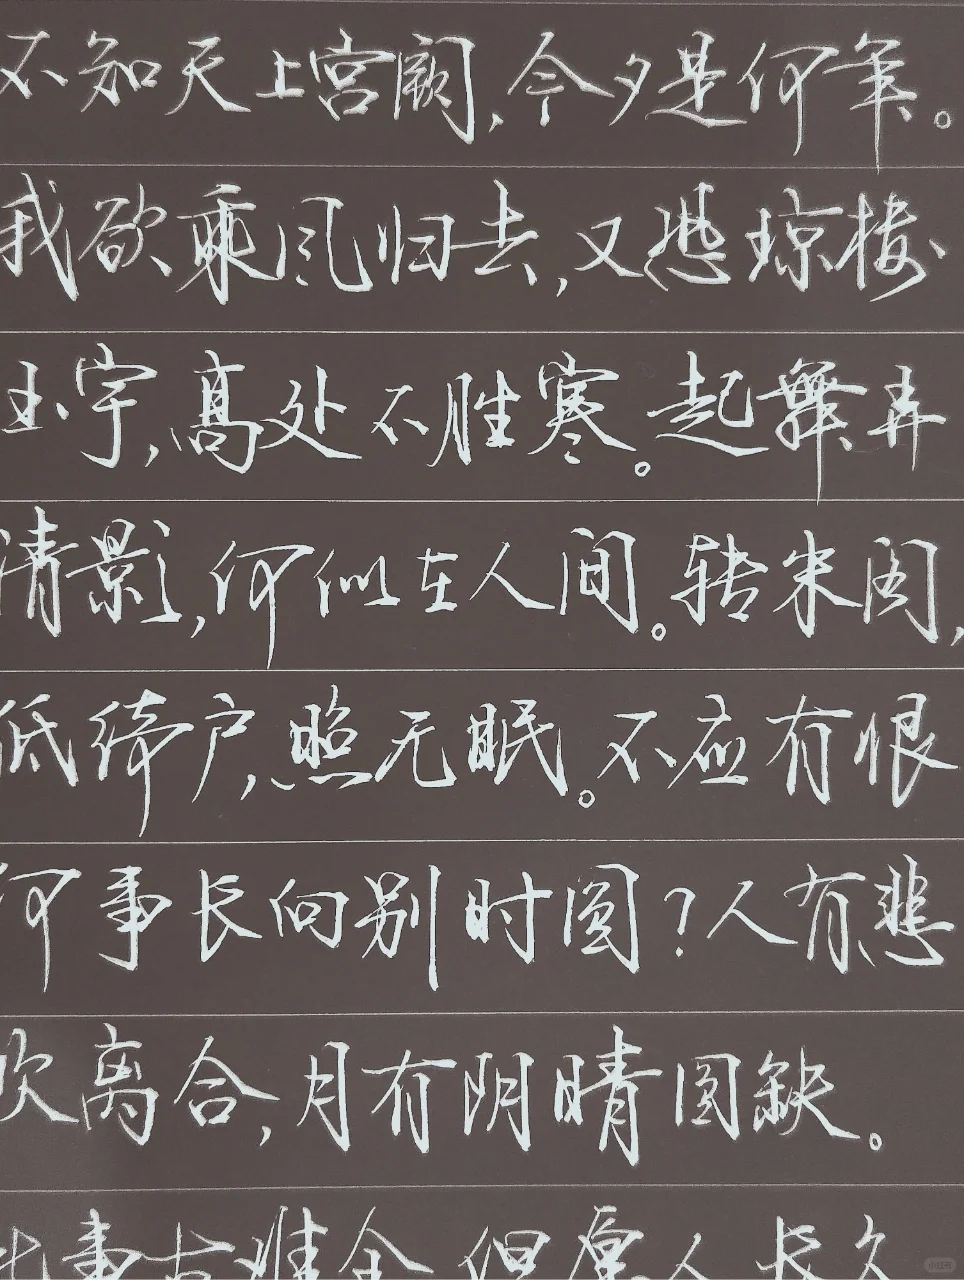 不知天上宫阙，今夕是何年。
我欲乘风归去，又恐琼楼
玉宇，高处不胜寒。起舞弄
清影，何似在人间。转朱阁，
低绮户，照无眠。不应有恨
何事长向别时圆？人有悲
欢离合，月有阴晴圆缺。
此事古难全 但愿人长久
小红书